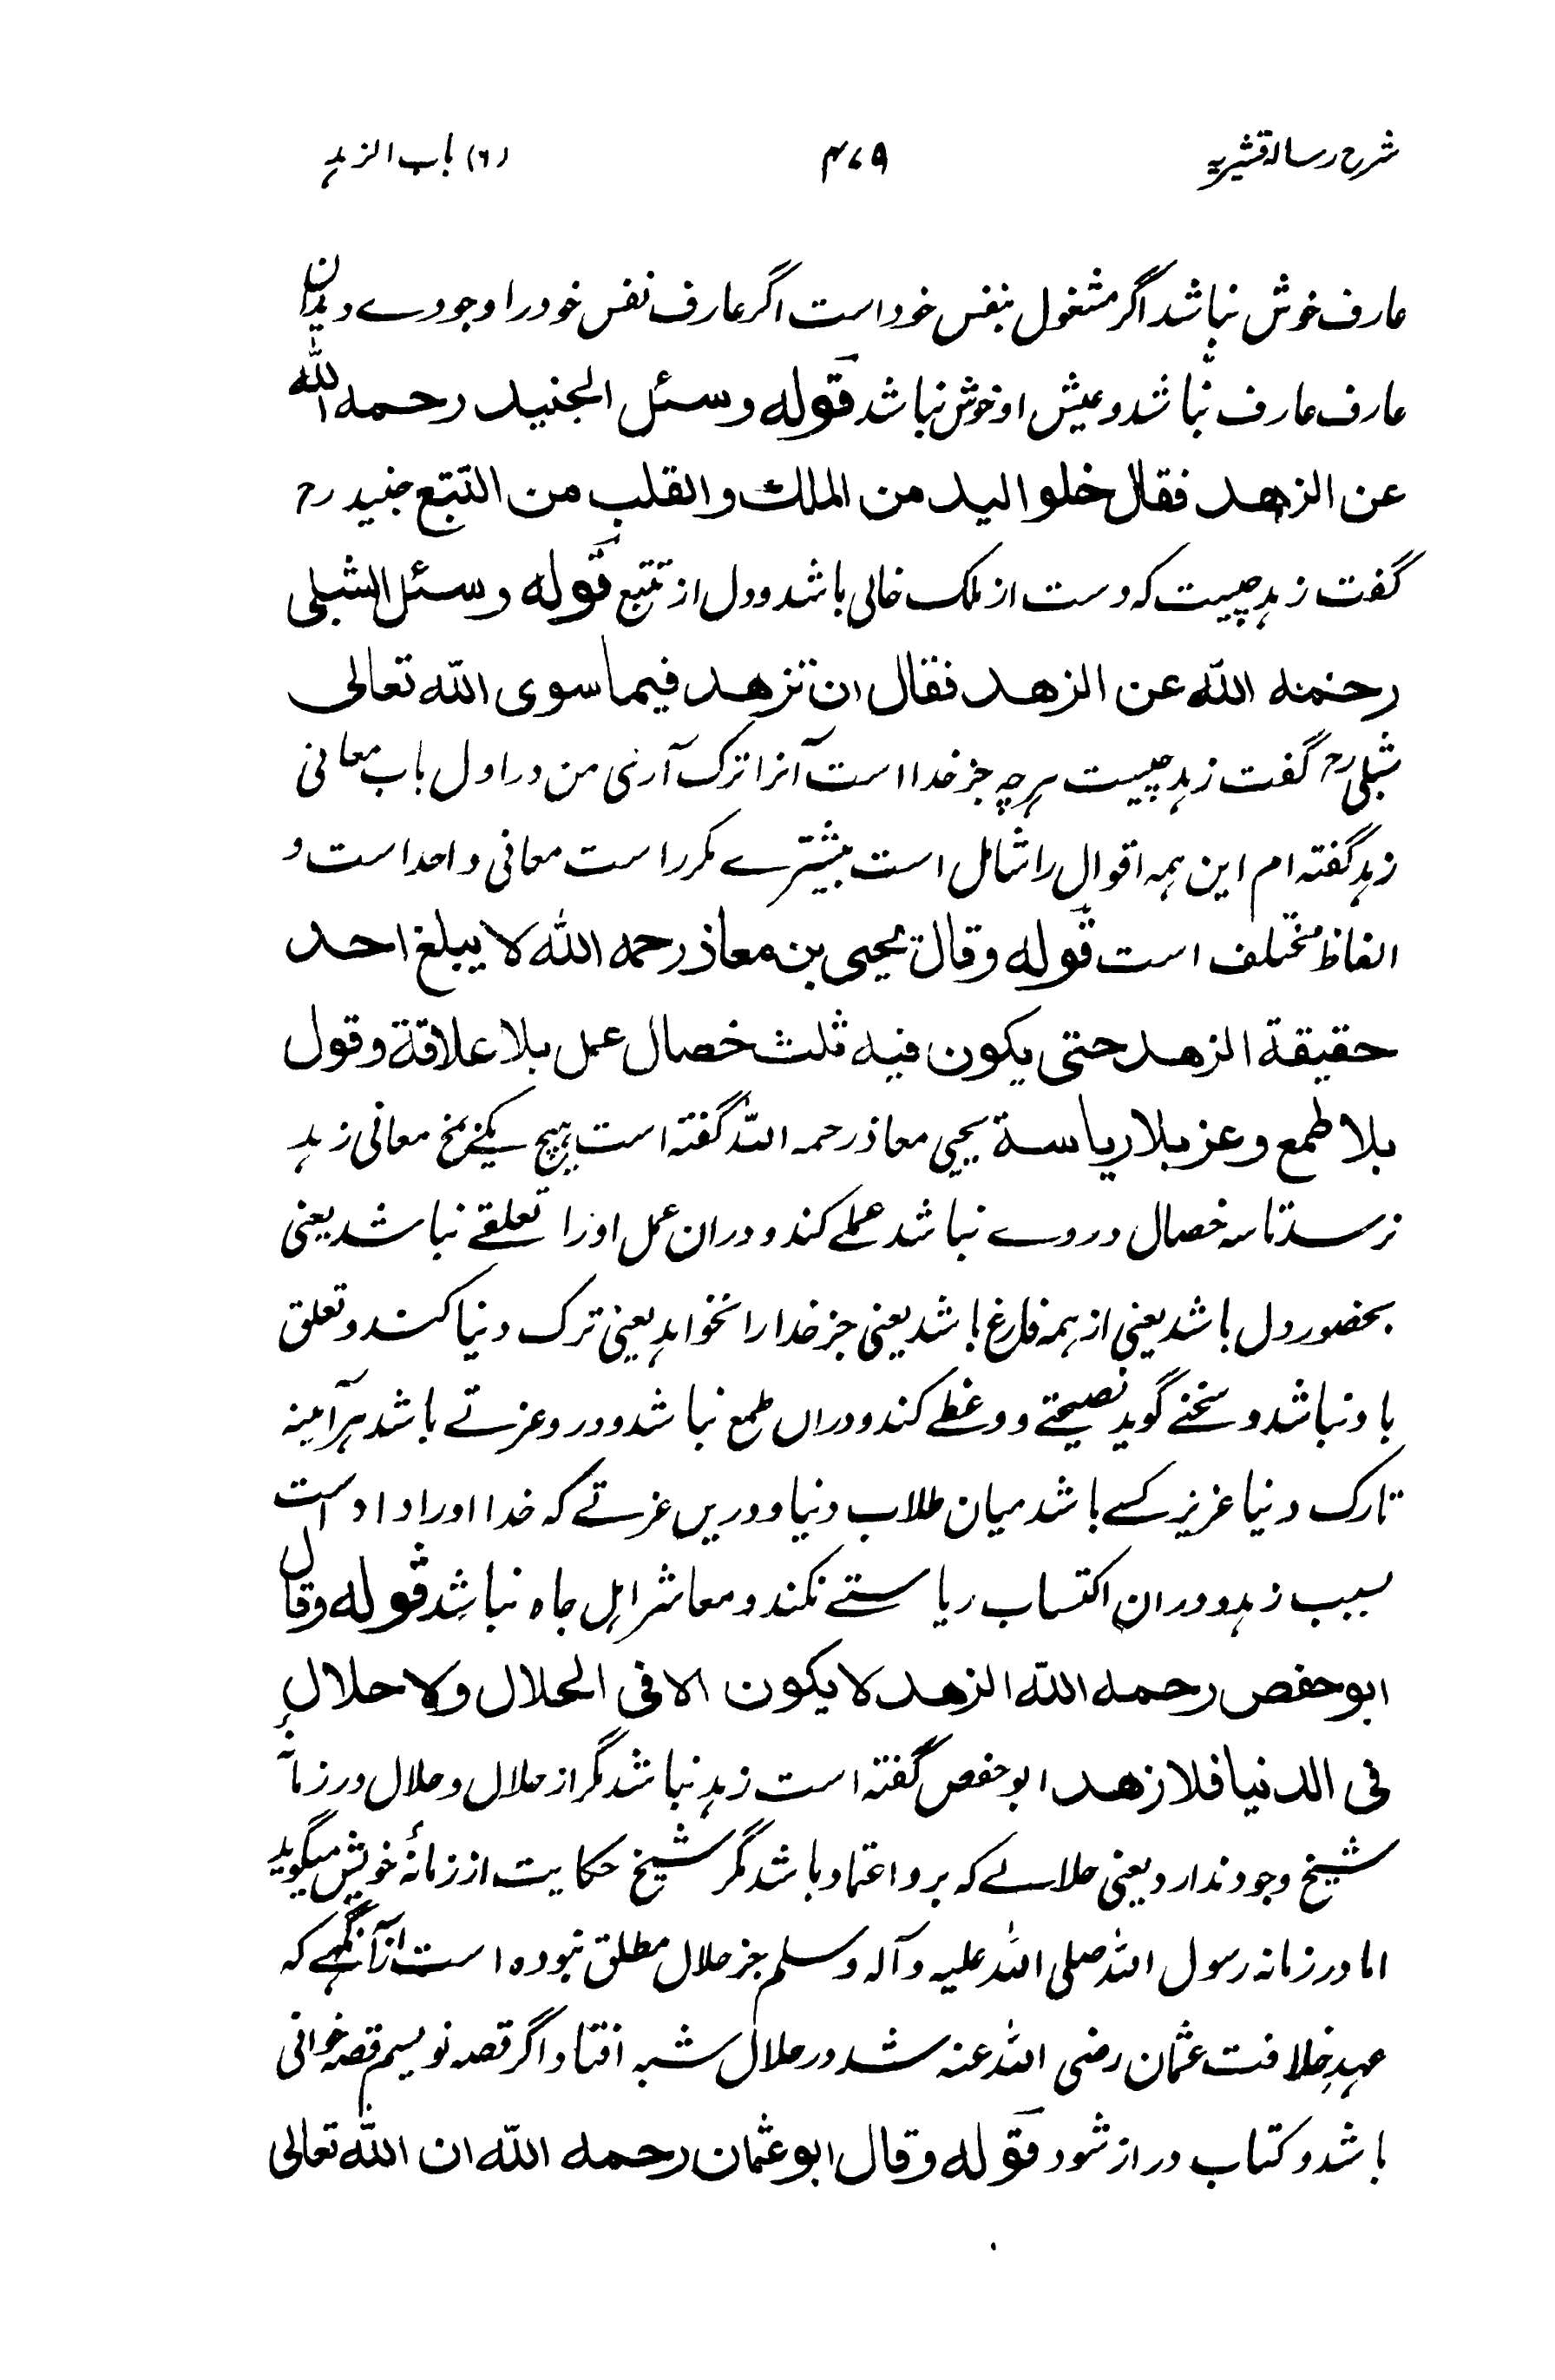 شرح رسالہ قشیریہ ۴۷۹ (۶) باب الزہد
عارف خوش نباشد اگر مشغول بنفس خود است اگر عارف نفس خود را وجودے دہد آن
عارف عارف نباشد و عیش او خوش نباشد قوله وسئل الجنید رحمه الله
عن الزهد فقال خلو الید من الملك والقلب من التتبع جنید رح
گفت زہد چیست کہ دست از ملک خالی باشد و دل از تتبع قوله وسئل الشبلی
رحمه الله عن الزهد فقال ان تزهد فیما سوی الله تعالی
شبلی رح گفت زہد چیست ہرچہ جز خدا است آنرا ترک آری من در اول باب معانی
زہد گفتہ ام این ہمہ اقوال را شامل است بیشترے مکرر است معانی واحد است و
الفاظ مختلف است قوله وقال یحیی بن معاذ رحمه الله لا یبلغ احد
حقیقة الزهد حتی یکون فیه ثلث خصال عمل بلا علاقة وقول
بلا طمع وعز بلا ریاسة یحیی معاذ رحمہ اللہ گفتہ است ہیچ یکے بمخ معانی زہد
نرسد تا سہ خصال دروے نباشد عملے کند و دران عمل اورا تعلقے نباشد یعنی
بحضور دل باشد یعنی از ہمہ فارغ باشد یعنی جز خدا را نخواہد یعنی ترک دنیا کند و تعلق
باو نباشد و سخنے گوید نصیحتے و وعظے کند و دراں طمع نباشد و درو عزتے باشد ہر آئینہ
تارک دنیا عزیز کسے باشد میان طلاب دنیا و دریں عزتے کہ خدا اورا داد است
بسبب زہد و دران اکتساب ریاستے نکند و معاشر اہل جاہ نباشد قوله وقال
ابو حفص رحمه الله الزهد لا یکون الا فی الحلال ولا حلال
فی الدنیا فلا زهد ابو حفص گفتہ است زہد نباشد مگر از حلال و حلال در زمانۂ
شیخ وجود ندارد یعنی حلالے کہ برو اعتماد باشد مگر شیخ حکایت از زمانۂ خویش میگوید
اما در زمانہ رسول اللہ صلی اللہ علیہ و آلہ وسلم جز حلال مطلق نبودہ است از آنگہے کہ
عہدِ خلافت عثمان رضی اللہ عنہ شد در حلال شبہ افتاد اگر قصہ نویسم قصہ خوانی
باشد و کتاب دراز شود قوله وقال ابو عثمان رحمه الله ان الله تعالی